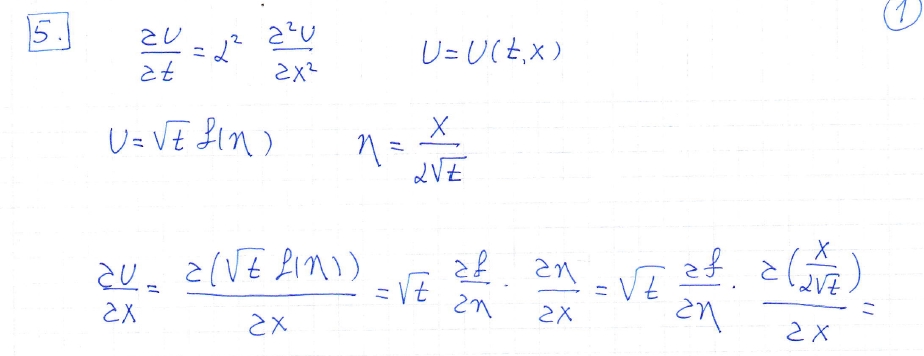 ①
5. ∂U/∂t = α² ∂²U/∂x²    U=U(t,x)
U=√t f(η)    η = x/(α√t)
∂U/∂x = ∂(√t f(η))/∂x = √t ∂f/∂η · ∂η/∂x = √t ∂f/∂η · ∂(x/(α√t))/∂x =